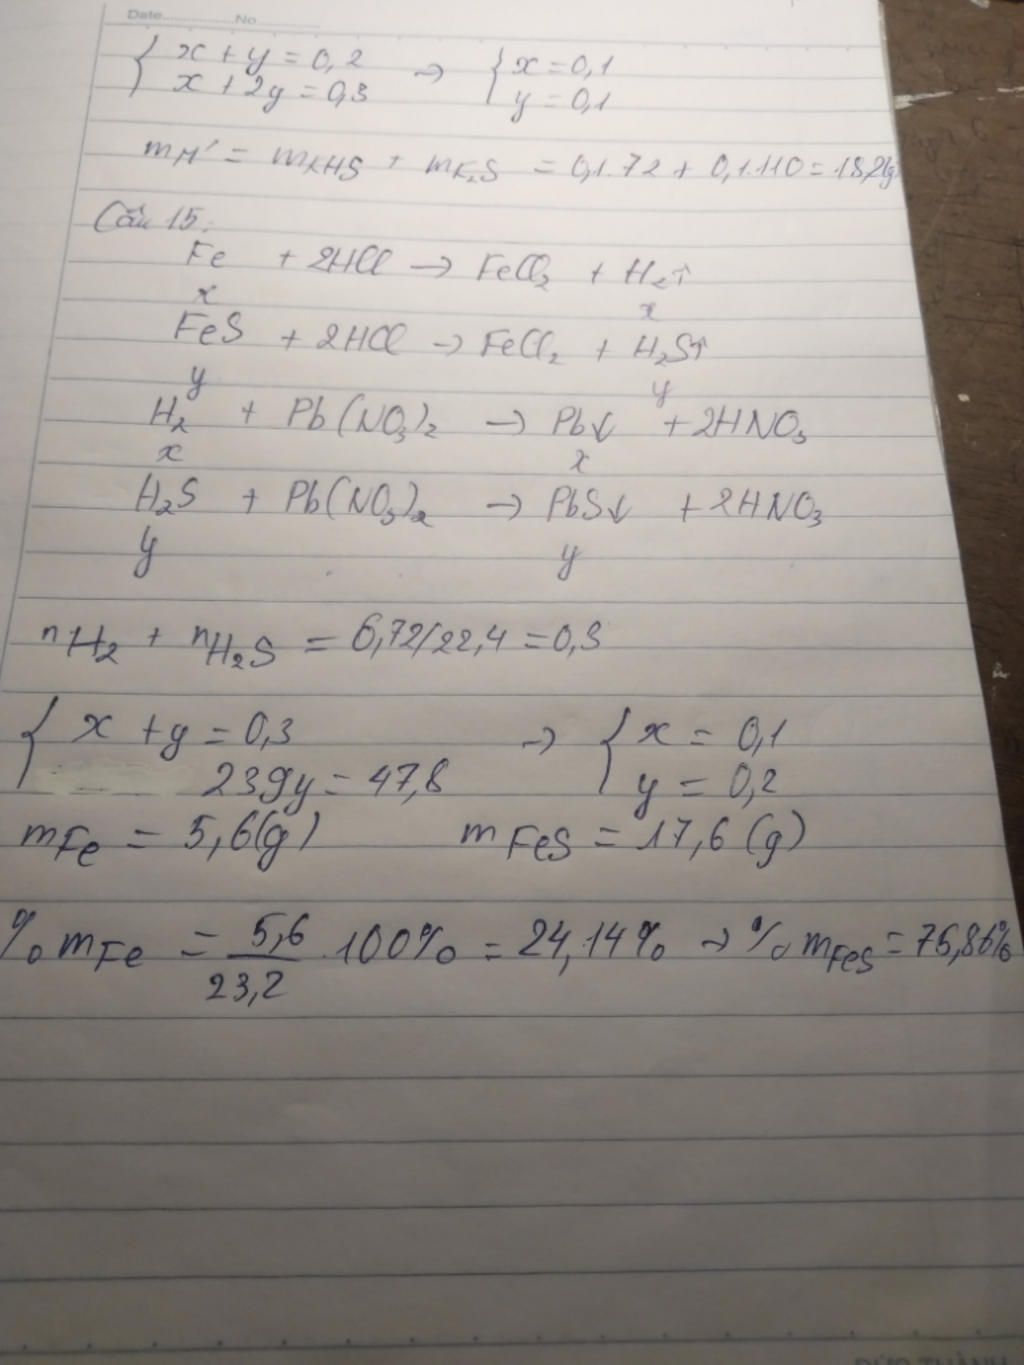 Date No
{ x + y = 0,2 → { x = 0,1
x + 2y = 0,3 y = 0,1
mM' = mKHS + mK₂S = 0,1.72 + 0,1.110 = 18,2(g)
Câu 15:
Fe + 2HCl → FeCl₂ + H₂↑
x x
FeS + 2HCl → FeCl₂ + H₂S↑
y y
H₂ + Pb(NO₃)₂ → Pb↓ + 2HNO₃
x x
H₂S + Pb(NO₃)₂ → PbS↓ + 2HNO₃
y y
nH₂ + nH₂S = 6,72/22,4 = 0,3
{ x + y = 0,3 → { x = 0,1
239y = 47,8 y = 0,2
mFe = 5,6(g) mFeS = 17,6 (g)
%mFe = 5,6/23,2 .100% = 24,14% → %mFeS = 75,86%